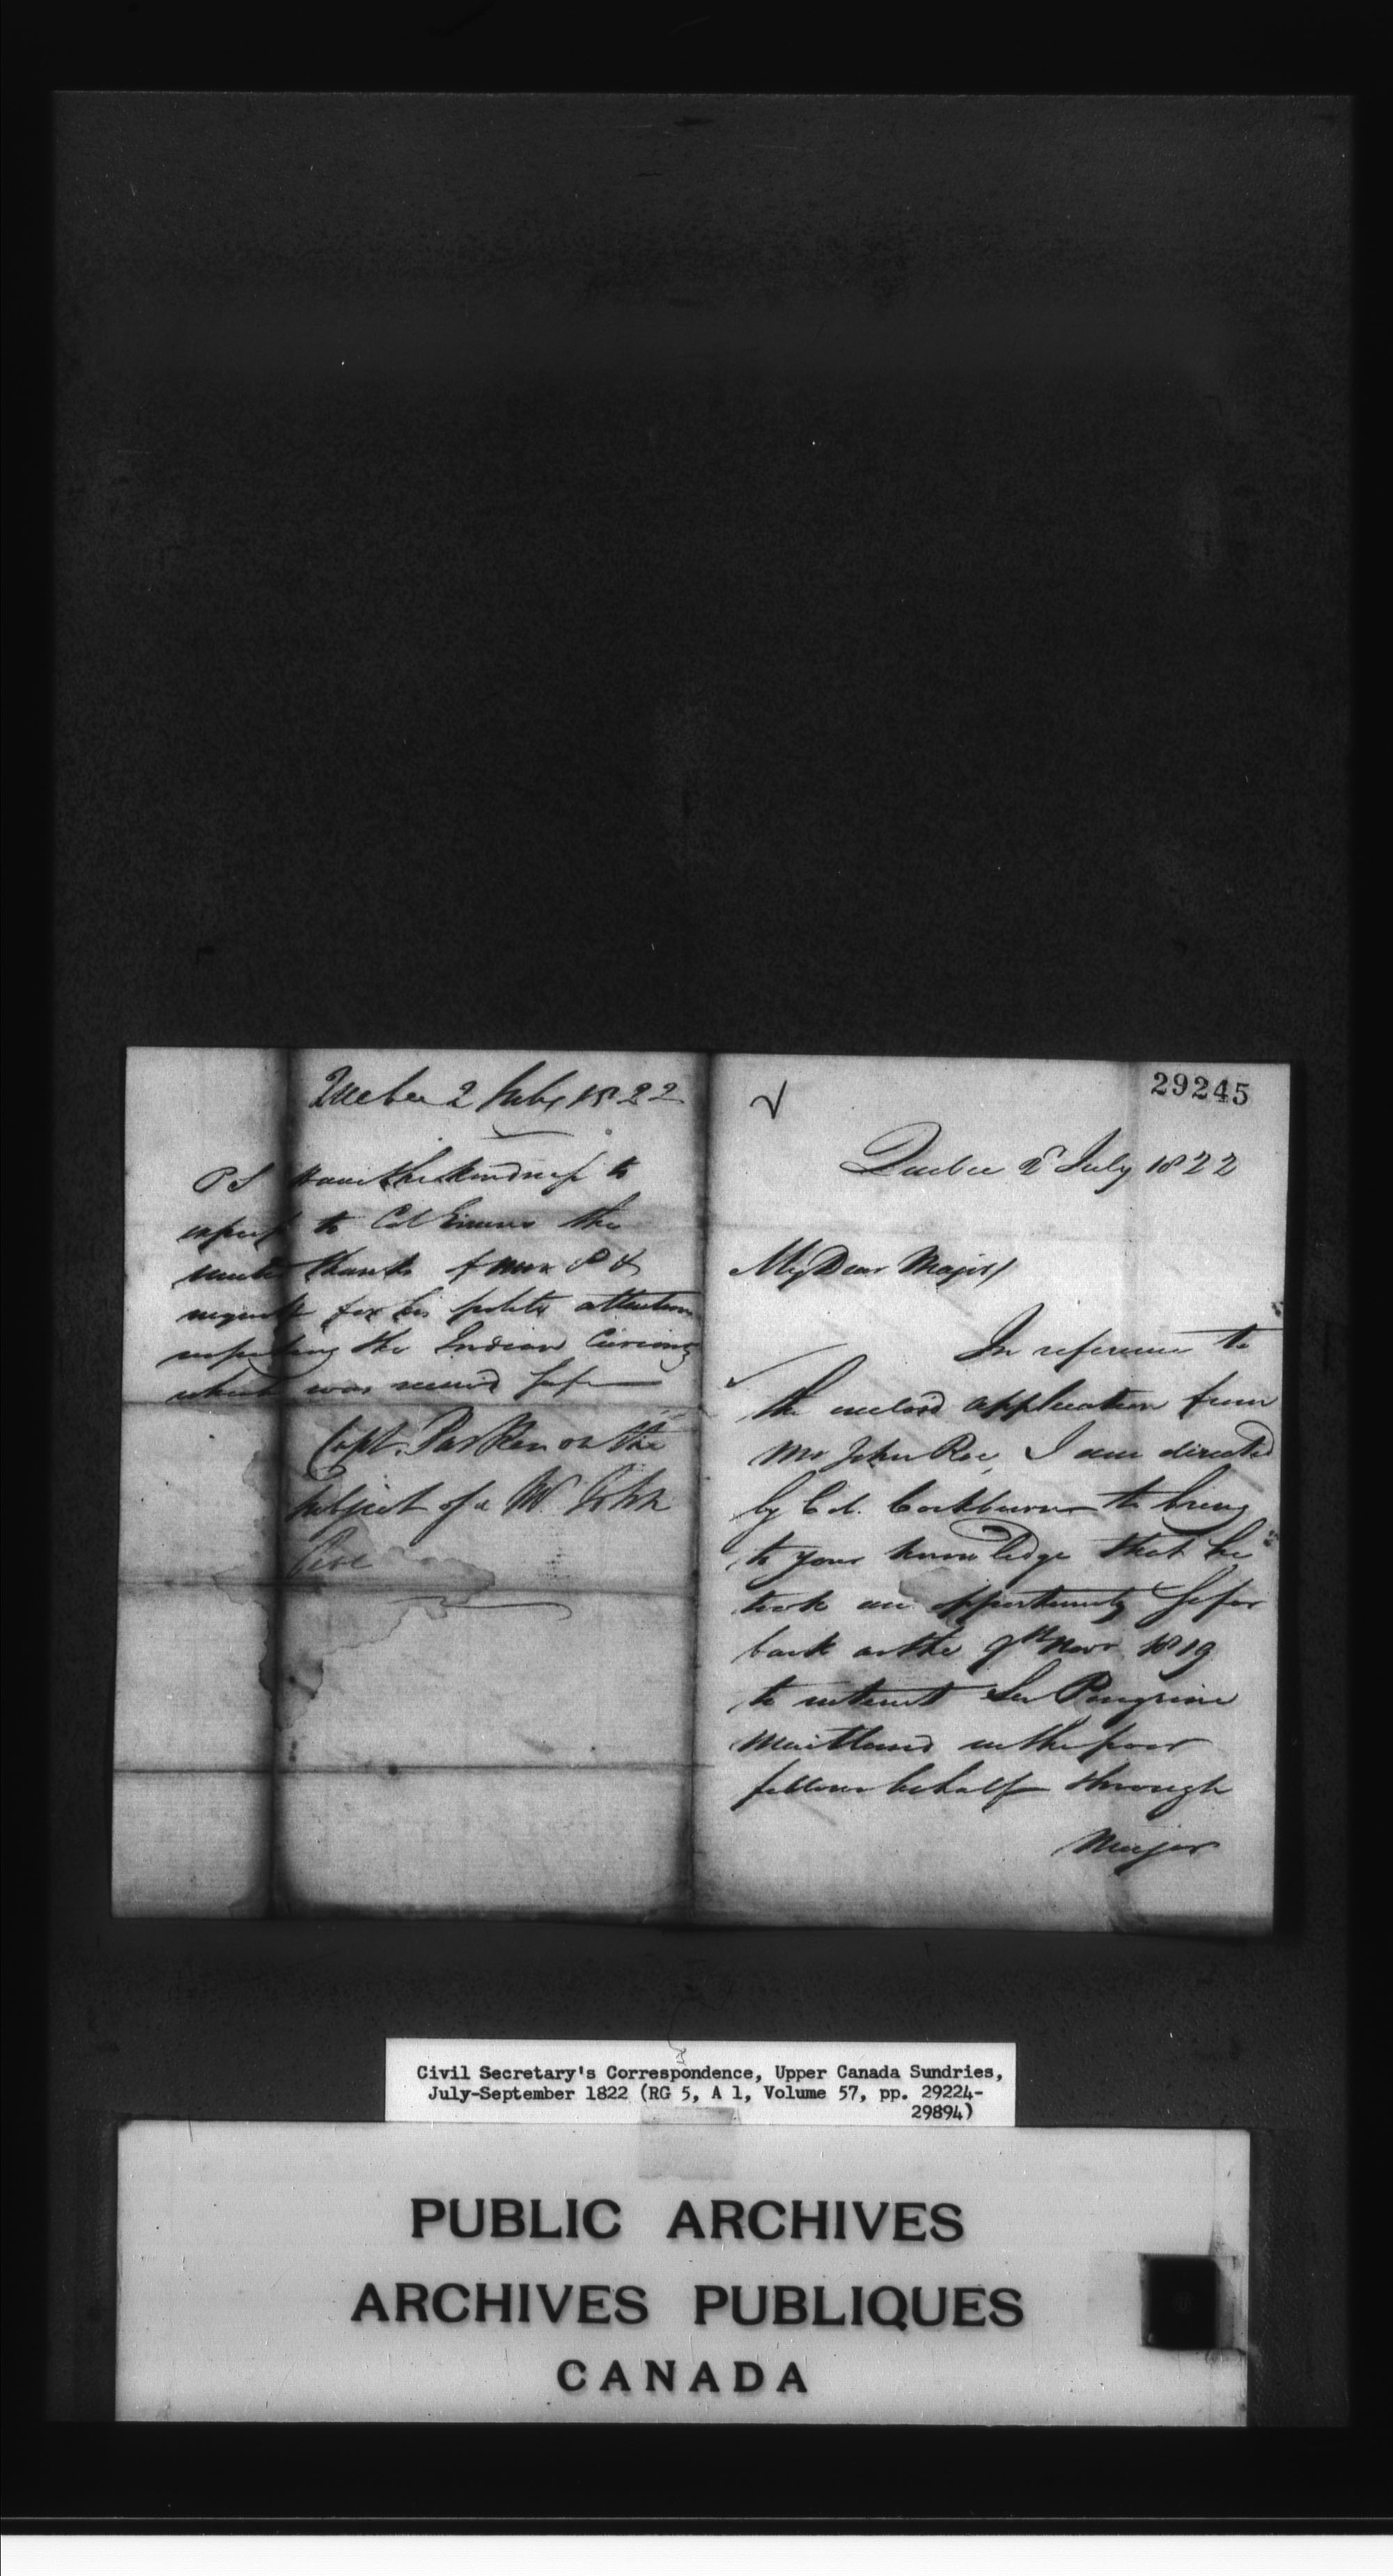 Quebec 2 July 1822
PS Have the kindness to
express to Col the
united thanks of &
for his polite attention
respecting the Indian Curiosity
which was received safe
Capt. Parker on the
subject of a Mr John
Roe
29245
Quebec 2d July 1822
My Dear Major/
In reference to
the enclos'd application from
Mr John Roe, I am directed
by Col. Cockburn to bring
to your knowledge that he
took an opportunity so far
back as the 9th Novr 1819
to interest Sir Peregrine
Maitland in the poor
fellows behalf through
Major
Civil Secretary's Correspondence, Upper Canada Sundries,
July-September 1822 (RG 5, A 1, Volume 57, pp. 29224-
29894)
PUBLIC ARCHIVES
ARCHIVES PUBLIQUES
CANADA